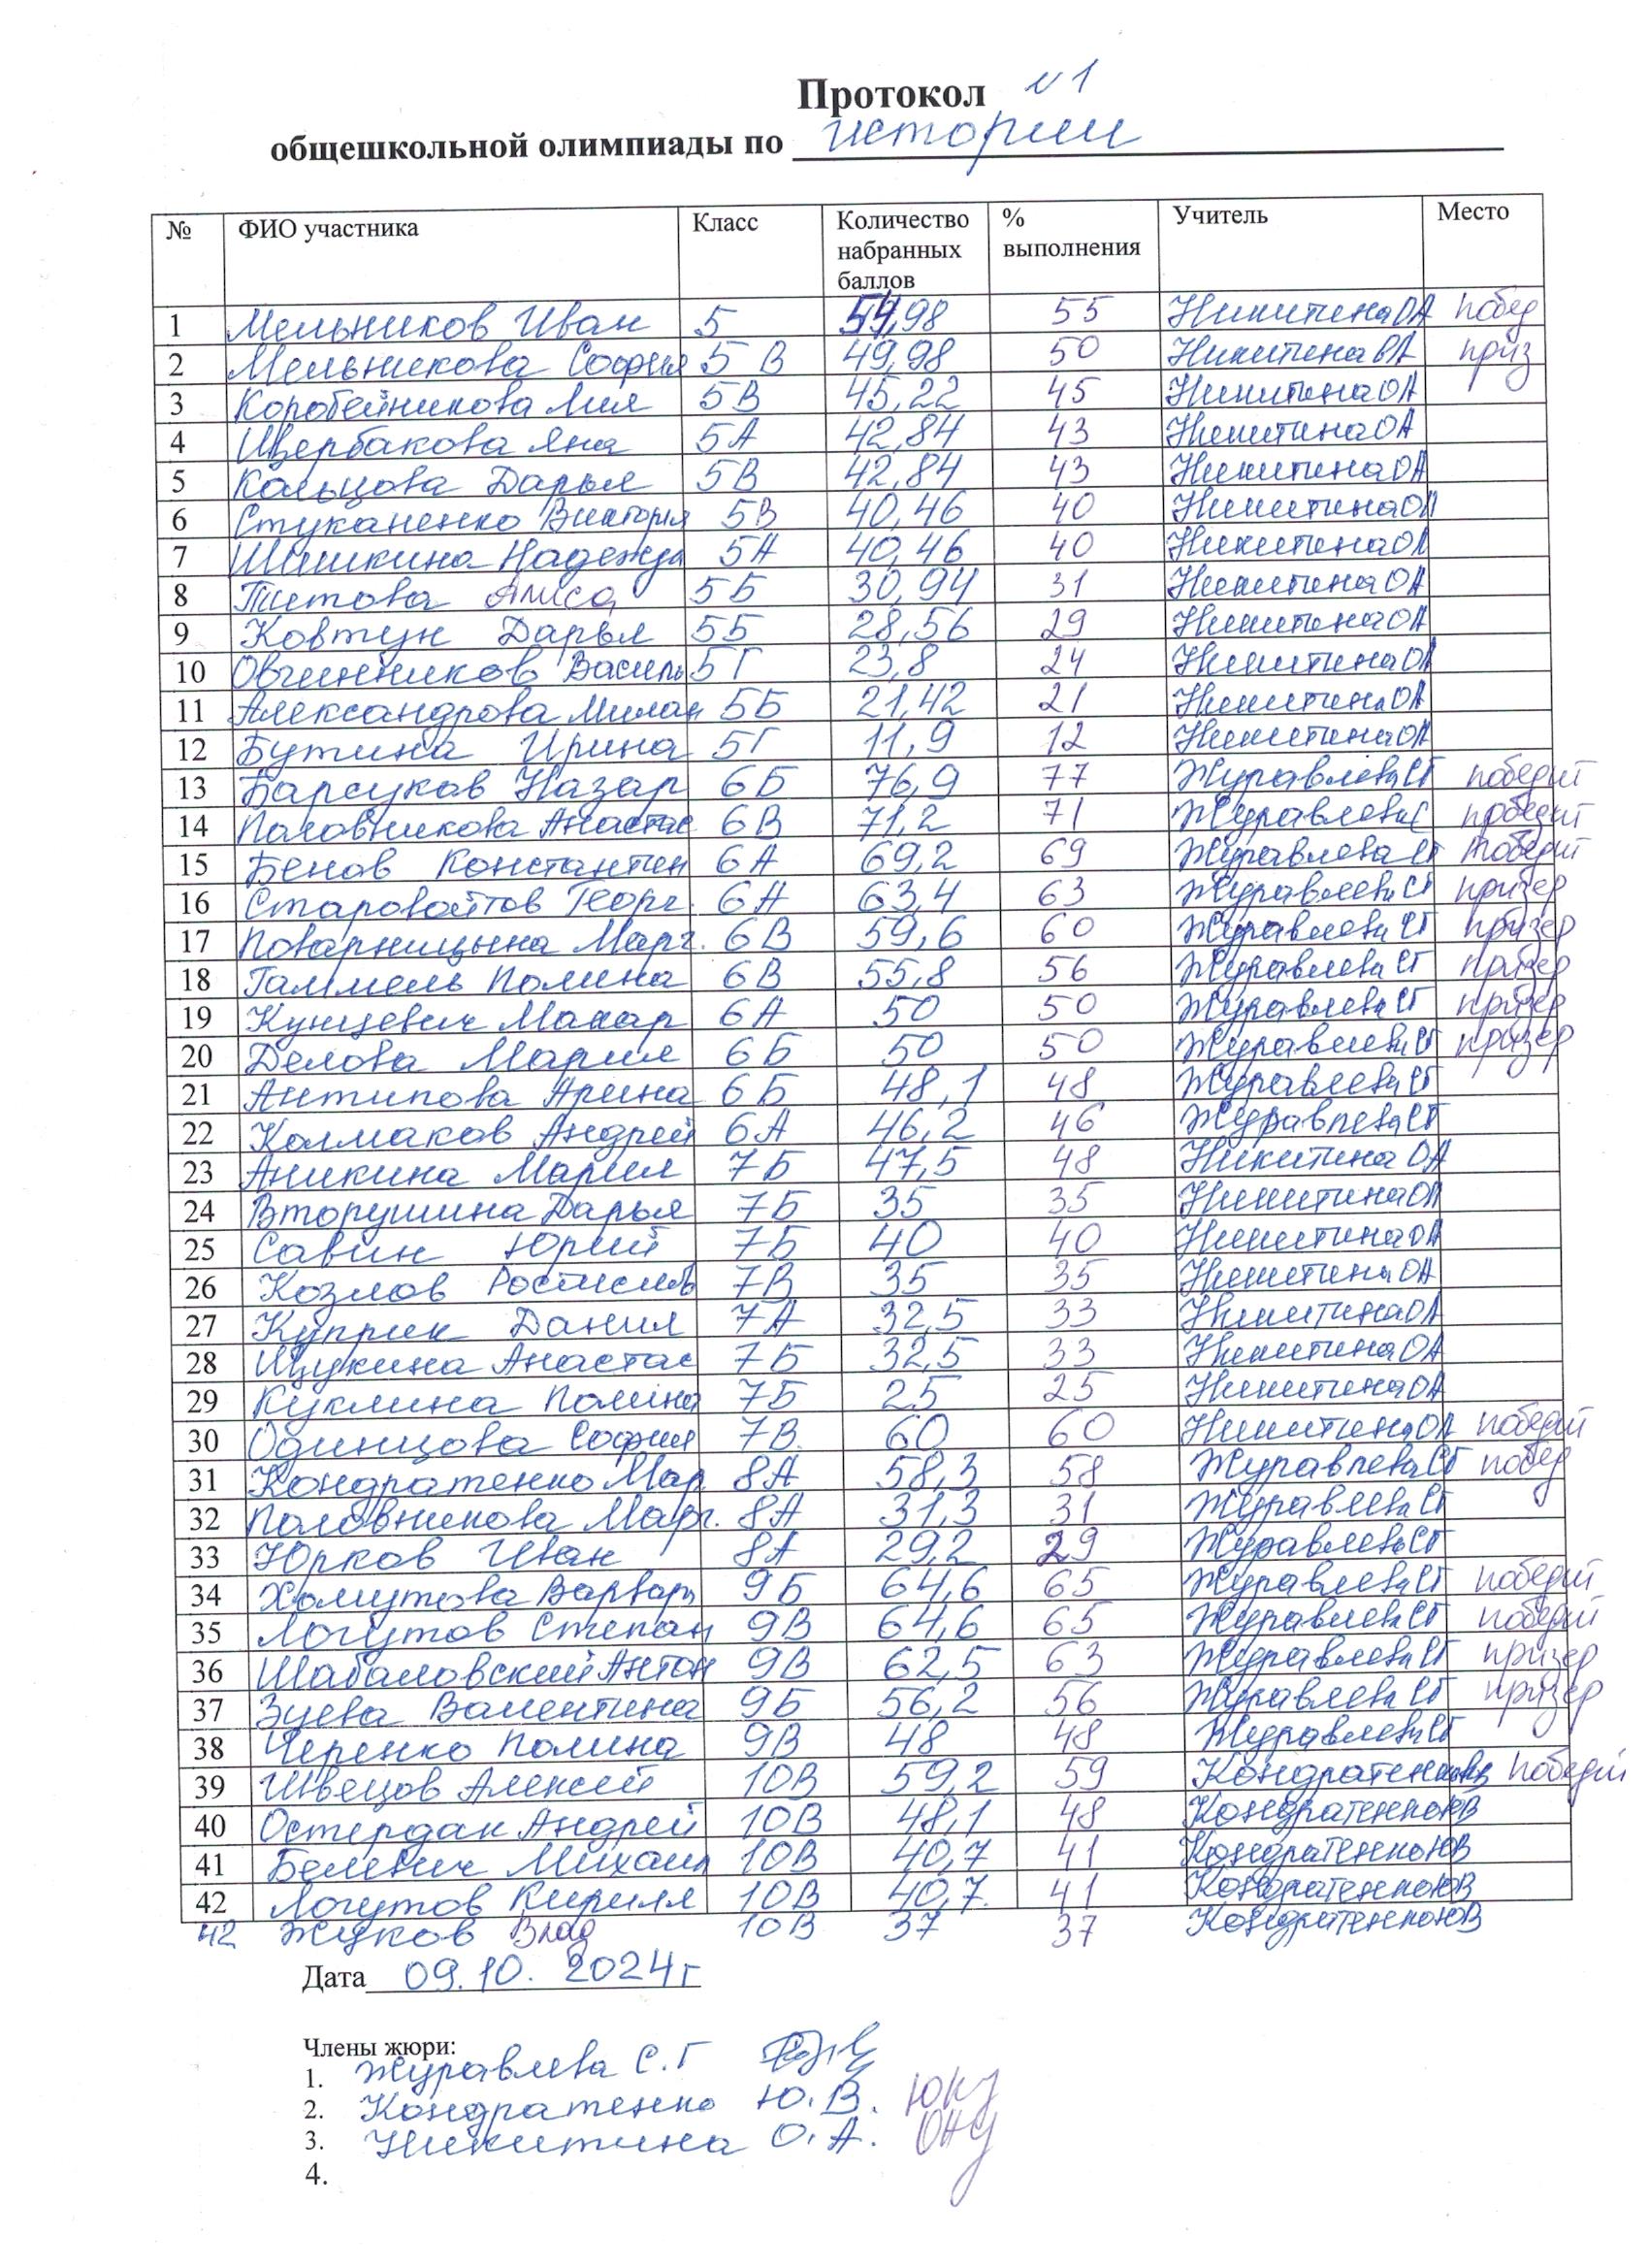 Протокол №1
общешкольной олимпиады по истории
№ ФИО участника Класс Количество набранных баллов % выполнения Учитель Место
1 Мельников Иван 5 54,98 55 Никитина ОА побед
2 Мельникова София 5 В 49,98 50 Никитина ОА приз
3 Коробейникова Лия 5В 45,22 45 Никитина ОА
4 Щербакова Яна 5А 42,84 43 Никитина ОА
5 Кольцова Дарья 5В 42,84 43 Никитина ОА
6 Стуканенко Виктория 5В 40,46 40 Никитина ОА
7 Шишкина Надежда 5А 40,46 40 Никитина ОА
8 Титова Алиса 5Б 30,94 31 Никитина ОА
9 Ковтун Дарья 5Б 28,56 29 Никитина ОА
10 Овчинников Василь 5Г 23,8 24 Никитина ОА
11 Александрова Милан 5Б 21,42 21 Никитина ОА
12 Бутина Ирина 5Г 11,9 12 Никитина ОА
13 Барсуков Назар 6Б 76,9 77 Журавлева СГ победит
14 Половникова Анастас 6В 71,2 71 Журавлева С победит
15 Бенов Константин 6А 69,2 69 Журавлева СГ победит
16 Старовойтов Георг. 6А 63,4 63 Журавлева СГ призер
17 Поварницына Марг. 6В 59,6 60 Журавлева СГ призер
18 Гаммель Полина 6В 55,8 56 Журавлева СГ призер
19 Кунцевич Макар 6А 50 50 Журавлева СГ призер
20 Делова Мария 6Б 50 50 Журавлева СГ призер
21 Антипова Арина 6Б 48,1 48 Журавлева СГ
22 Колмаков Андрей 6А 46,2 46 Журавлева СГ
23 Аникина Мария 7Б 47,5 48 Никитина ОА
24 Вторушина Дарья 7Б 35 35 Никитина ОА
25 Савин Юрий 7Б 40 40 Никитина ОА
26 Козлов Ростислав 7В 35 35 Никитина ОА
27 Куприк Данил 7А 32,5 33 Никитина ОА
28 Щукина Анастас 7Б 32,5 33 Никитина ОА
29 Куклина Полина 7Б 25 25 Никитина ОА
30 Одинцова София 7В. 60 60 Никитина ОА победит
31 Кондратенко Мар 8А 58,3 58 Журавлева СГ побед
32 Половникова Марг. 8А 31,3 31 Журавлева СГ
33 Юрков Иван 8А 29,2 29 Журавлева СГ
34 Хомутова Варвар 9Б 64,6 65 Журавлева СГ победит
35 Логутов Степан 9В 64,6 65 Журавлева СГ победит
36 Шабаловский Антон 9В 62,5 63 Журавлева СГ призер
37 Зуева Валентина 9Б 56,2 56 Журавлева СГ призер
38 Черенко Полина 9В 48 48 Журавлева СГ
39 Швецов Алексей 10В 59,2 59 Кондратенко победит
40 Остердак Андрей 10В 48,1 48 Кондратенко ЮВ
41 Белевич Михаил 10В 40,7 41 Кондратенко ЮВ
42 Логутов Кирилл 10В 40,7. 41 Кондратенко ЮВ
42 Жуков Влад 10В 37 37 Кондратенко ЮВ
Дата 09.10. 2024г
Члены жюри:
1. Журавлева С.Г
2. Кондратенко Ю.В.
3. Никитина О.А.
4.